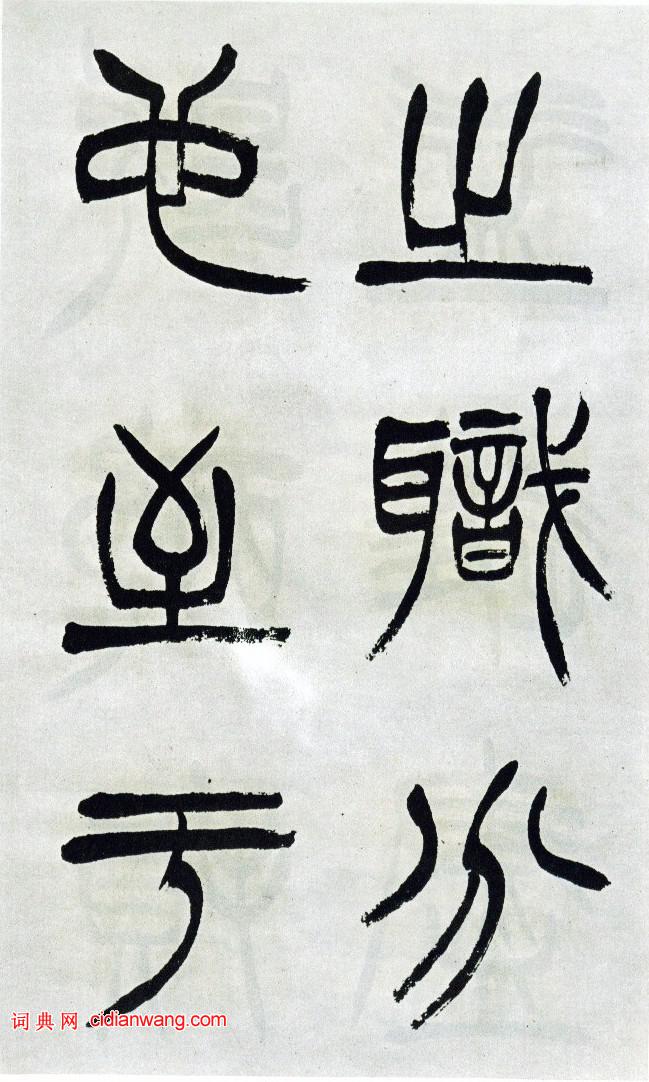 之職分
也至于
词典网 cidianwang.com